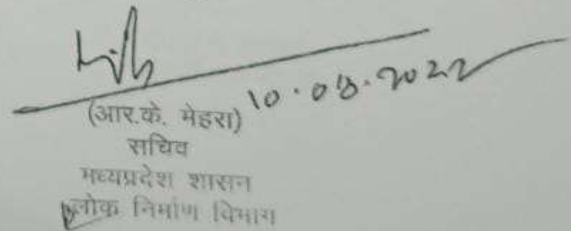 10.08.2022
(आर.के. मेहरा)
सचिव
मध्यप्रदेश शासन
लोक निर्माण विभाग